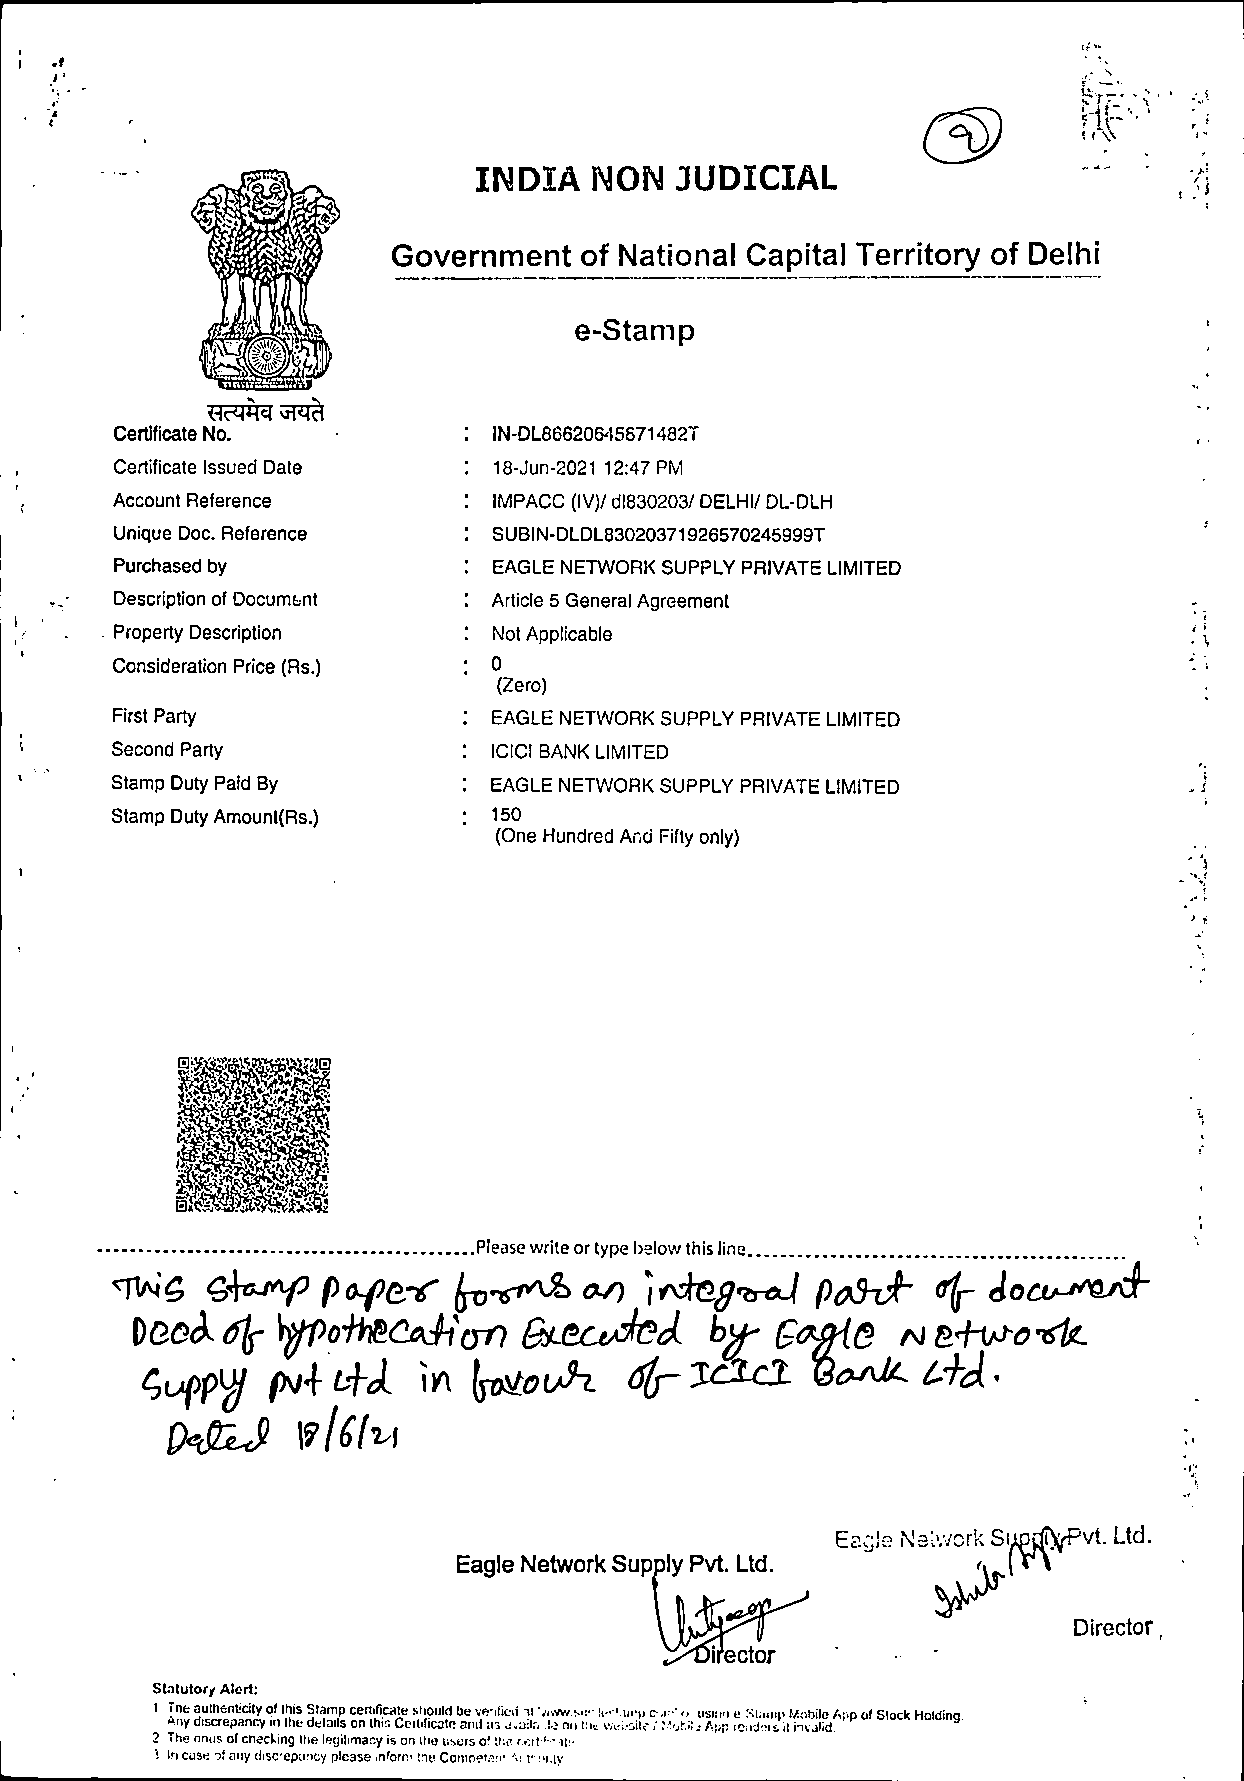 INDIA NON JUDICIAL
Government of National Capital Territory of Delhi
e-Stamp
सत्यमेव जयते
Certificate No. : IN-DL86620645671482T
Certificate Issued Date : 18-Jun-2021 12:47 PM
Account Reference : IMPACC (IV)/ dl830203/ DELHI/ DL-DLH
Unique Doc. Reference : SUBIN-DLDL83020371926570245999T
Purchased by : EAGLE NETWORK SUPPLY PRIVATE LIMITED
Description of Document : Article 5 General Agreement
Property Description : Not Applicable
Consideration Price (Rs.) : 0
(Zero)
First Party : EAGLE NETWORK SUPPLY PRIVATE LIMITED
Second Party : ICICI BANK LIMITED
Stamp Duty Paid By : EAGLE NETWORK SUPPLY PRIVATE LIMITED
Stamp Duty Amount(Rs.) : 150
(One Hundred And Fifty only)
Please write or type below this line
This stamp paper forms an integral part of document
Deed of hypothecation Executed by Eagle Network
Supply pvt Ltd in favour of ICICI Bank Ltd.
Dated 18/6/21
Eagle Network Supply Pvt. Ltd.
Eagle Network Supply Pvt. Ltd.
Director
Director
Statutory Alert:
1 The authenticity of this Stamp certificate should be verified at using e Stamp Mobile App of Stock Holding.
Any discrepancy in the details on this Certificate and as available on the website / Mobile App renders it invalid.
2 The onus of checking the legitimacy is on the users of the certificate
3 In case of any discrepancy please inform the Competent Authority